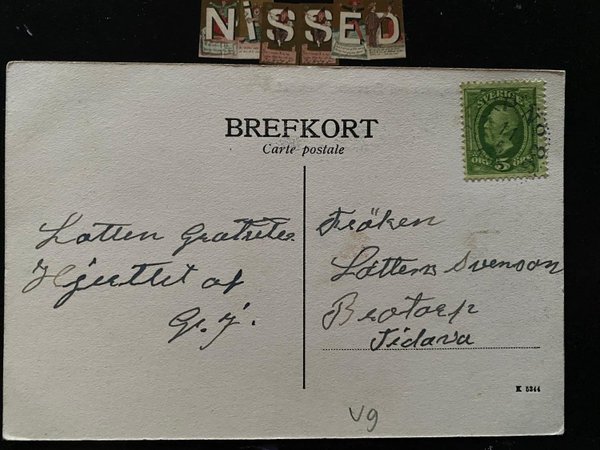 NiSSED
BREFKORT
Carte postale
SVERIGE
5
ÖRE
Lotten Gratuleras
Hjertlit af
G. J.
Fröken
Lotten Svenson
Brotorp
Tidava
K 5344
V9